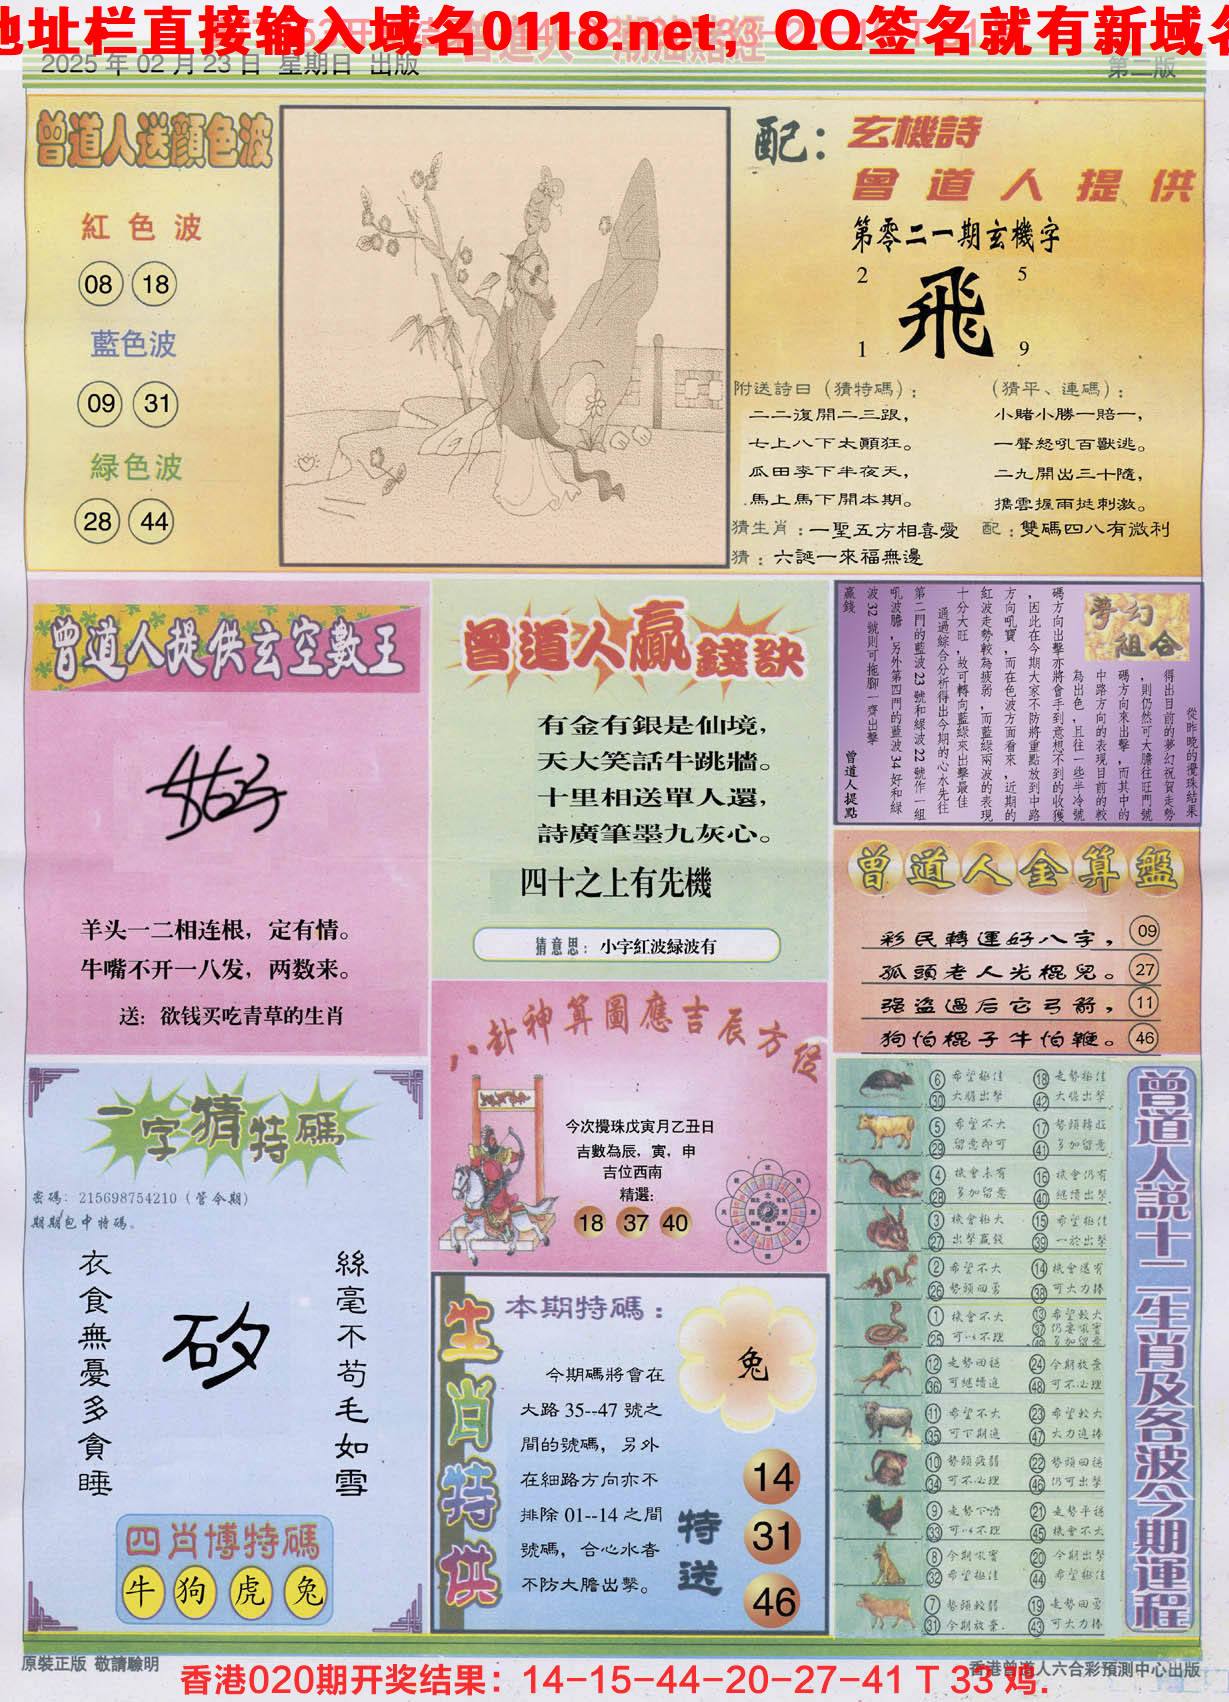 地址栏直接输入域名0118.net，QQ签名就有新域名
2025 年 02 月 23 日 星期日 出版
第二版
曾道人送顔色波
紅色波
08 18
藍色波
09 31
緑色波
28 44
配：玄機詩
曾道人提供
第零二一期玄機字
2 5
飛
1 9
附送詩曰（猜特碼）：
二二復開二三跟，
七上八下太顛狂。
瓜田李下半夜天，
馬上馬下開本期。
（猜平、連碼）：
小賭小勝一賠一，
一聲怒吼百獸逃。
二九開出三十隨，
攜雲握雨挺刺激。
猜生肖：一聖五方相喜愛
配：雙碼四八有微利
猜：六誕一來福無邊
曾道人提供玄空數王
羊头一二相连根，定有情。
牛嘴不开一八发，两数来。
送：欲钱买吃青草的生肖
曾道人贏錢訣
有金有銀是仙境，
天大笑話牛跳牆。
十里相送單人還，
詩廣筆墨九灰心。
四十之上有先機
猜意思：小字紅波緑波有
夢幻組合
從昨晚的攪珠結果
得出目前的夢幻祝賀走勢
，則仍然可大膽往旺門號
碼方向來出擊，而其中的
中路方向的表現目前的較
為出色，且往一些半冷號
碼方向出擊亦將會手到意想不到的收獲
，因此在今期大家不防將重點放到中路
方向吼寶，而在色波方面看來，近期的
紅波走勢較為疲弱，而藍綠兩波的表現
十分大旺，故可轉向藍綠來出擊最佳
通過綜合分析得出今期的心水先往
第二門的藍波 23 號和綠波 22 號作一組
吼波膽，另外第四門的藍波 34 好和綠
波 32 號則可拖腳一齊出擊
贏錢
曾道人提點
曾道人金算盤
彩民轉運好八字， 09
孤頭老人光棍兒。 27
强盗過后它弓箭， 11
狗怕棍子牛怕鞭。 46
八卦神算圖應吉辰方位
今次攪珠戊寅月乙丑日
吉數為辰，寅，申
吉位西南
精選：
18 37 40
一字猜特碼
密碼：215698754210（管令期）
期期包中特碼。
衣食無憂多貪睡
矽
絲毫不苟毛如雪
四肖博特碼
牛 狗 虎 兔
生肖特供
本期特碼：
兔
今期碼將會在
大路 35--47 號之
間的號碼，另外
在細路方向亦不
排除 01--14 之間
號碼，合心水者
不防大膽出擊。
特送
14
31
46
曾道人說十二生肖及各波今期運程
6 希望極佳 18 走勢極佳
30 大膽出擊 42 大膽出擊
5 希望不大 17 勢頭轉旺
29 留意即可 41 多加留意
4 機會未有 16 機會仍有
28 多加留意 40 繼續出擊
3 機會極大 15 希望極佳
27 出擊贏錢 39 一於出擊
2 希望不大 14 機會還有
26 勢頭回勇 38 可大力捧
1 機會不大 13 希望較大
25 可以不理 37 仍要吼實
49 多加留意
12 走勢回穩 24 今期放棄
36 可繼續追 48 可不必理
11 希望不大 23 希望較大
35 可下期追 47 大力追捧
10 勢頭疲弱 22 勢頭回穩
34 可不必理 46 仍可出擊
9 走勢不濟 21 走勢平穩
33 可以不理 45 機會不大
8 今期吼實 20 今期出擊
32 希望極佳 44 希望極佳
7 勢頭較弱 19 走勢回勇
31 今期放棄. 43 可大力捧
原裝正版 敬請驗明
香港曾道人六合彩預測中心出版
香港020期开奖结果：14-15-44-20-27-41 T 33 鸡.